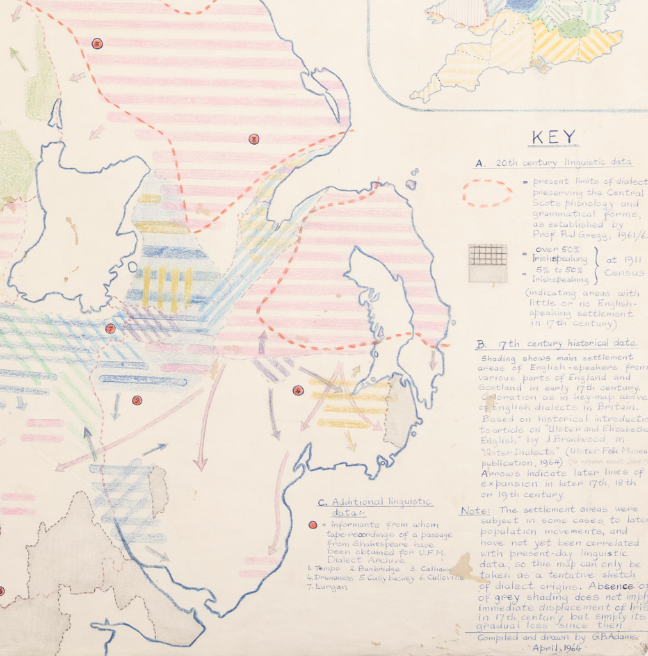 KEY
A. 20th century linguistic data
= present limits of dialect
preserving the Central
Scots phonology and
grammatical forms,
as established by
Prof. R.J. Gregg, 1961/6
= over 50%
Irish-speaking
= 5% to 50%
Irish-speaking
at 1911
Census
(indicating areas with
little or no English-
speaking settlement
in 17th century)
B. 17th century historical data
Shading shows main settlement
areas of English-speakers from
various parts of England and
Scotland in early 17th century.
Coloration as in key-map above
of English dialects in Britain.
Based on historical introduction
to article on "Ulster and Elizabethan
English," by J. Braidwood, in
"Ulster Dialects" (Ulster Folk Museum
publication, 1964)
Arrows indicate later lines of
expansion in later 17th, 18th
or 19th century
Note: The settlement areas were
subject in some cases to later
population movements, and
have not yet been correlated
with present-day linguistic
data, so this map can only be
taken as a tentative sketch
of dialect origins. Absence of
of grey shading does not imply
immediate displacement of Irish
in 17th century but simply its
gradual loss since then
Compiled and drawn by G.B. Adams
April, 1964
C. Additional linguistic
data:
= informants from whom
tape-recordings of a passage
from Shakespeare have
been obtained for U.F.M.
Dialect Archive
1. Tempo 2. Banbridge 3.
4. Drumaness 5. Cullybackey 6.
7. Lurgan
7
4